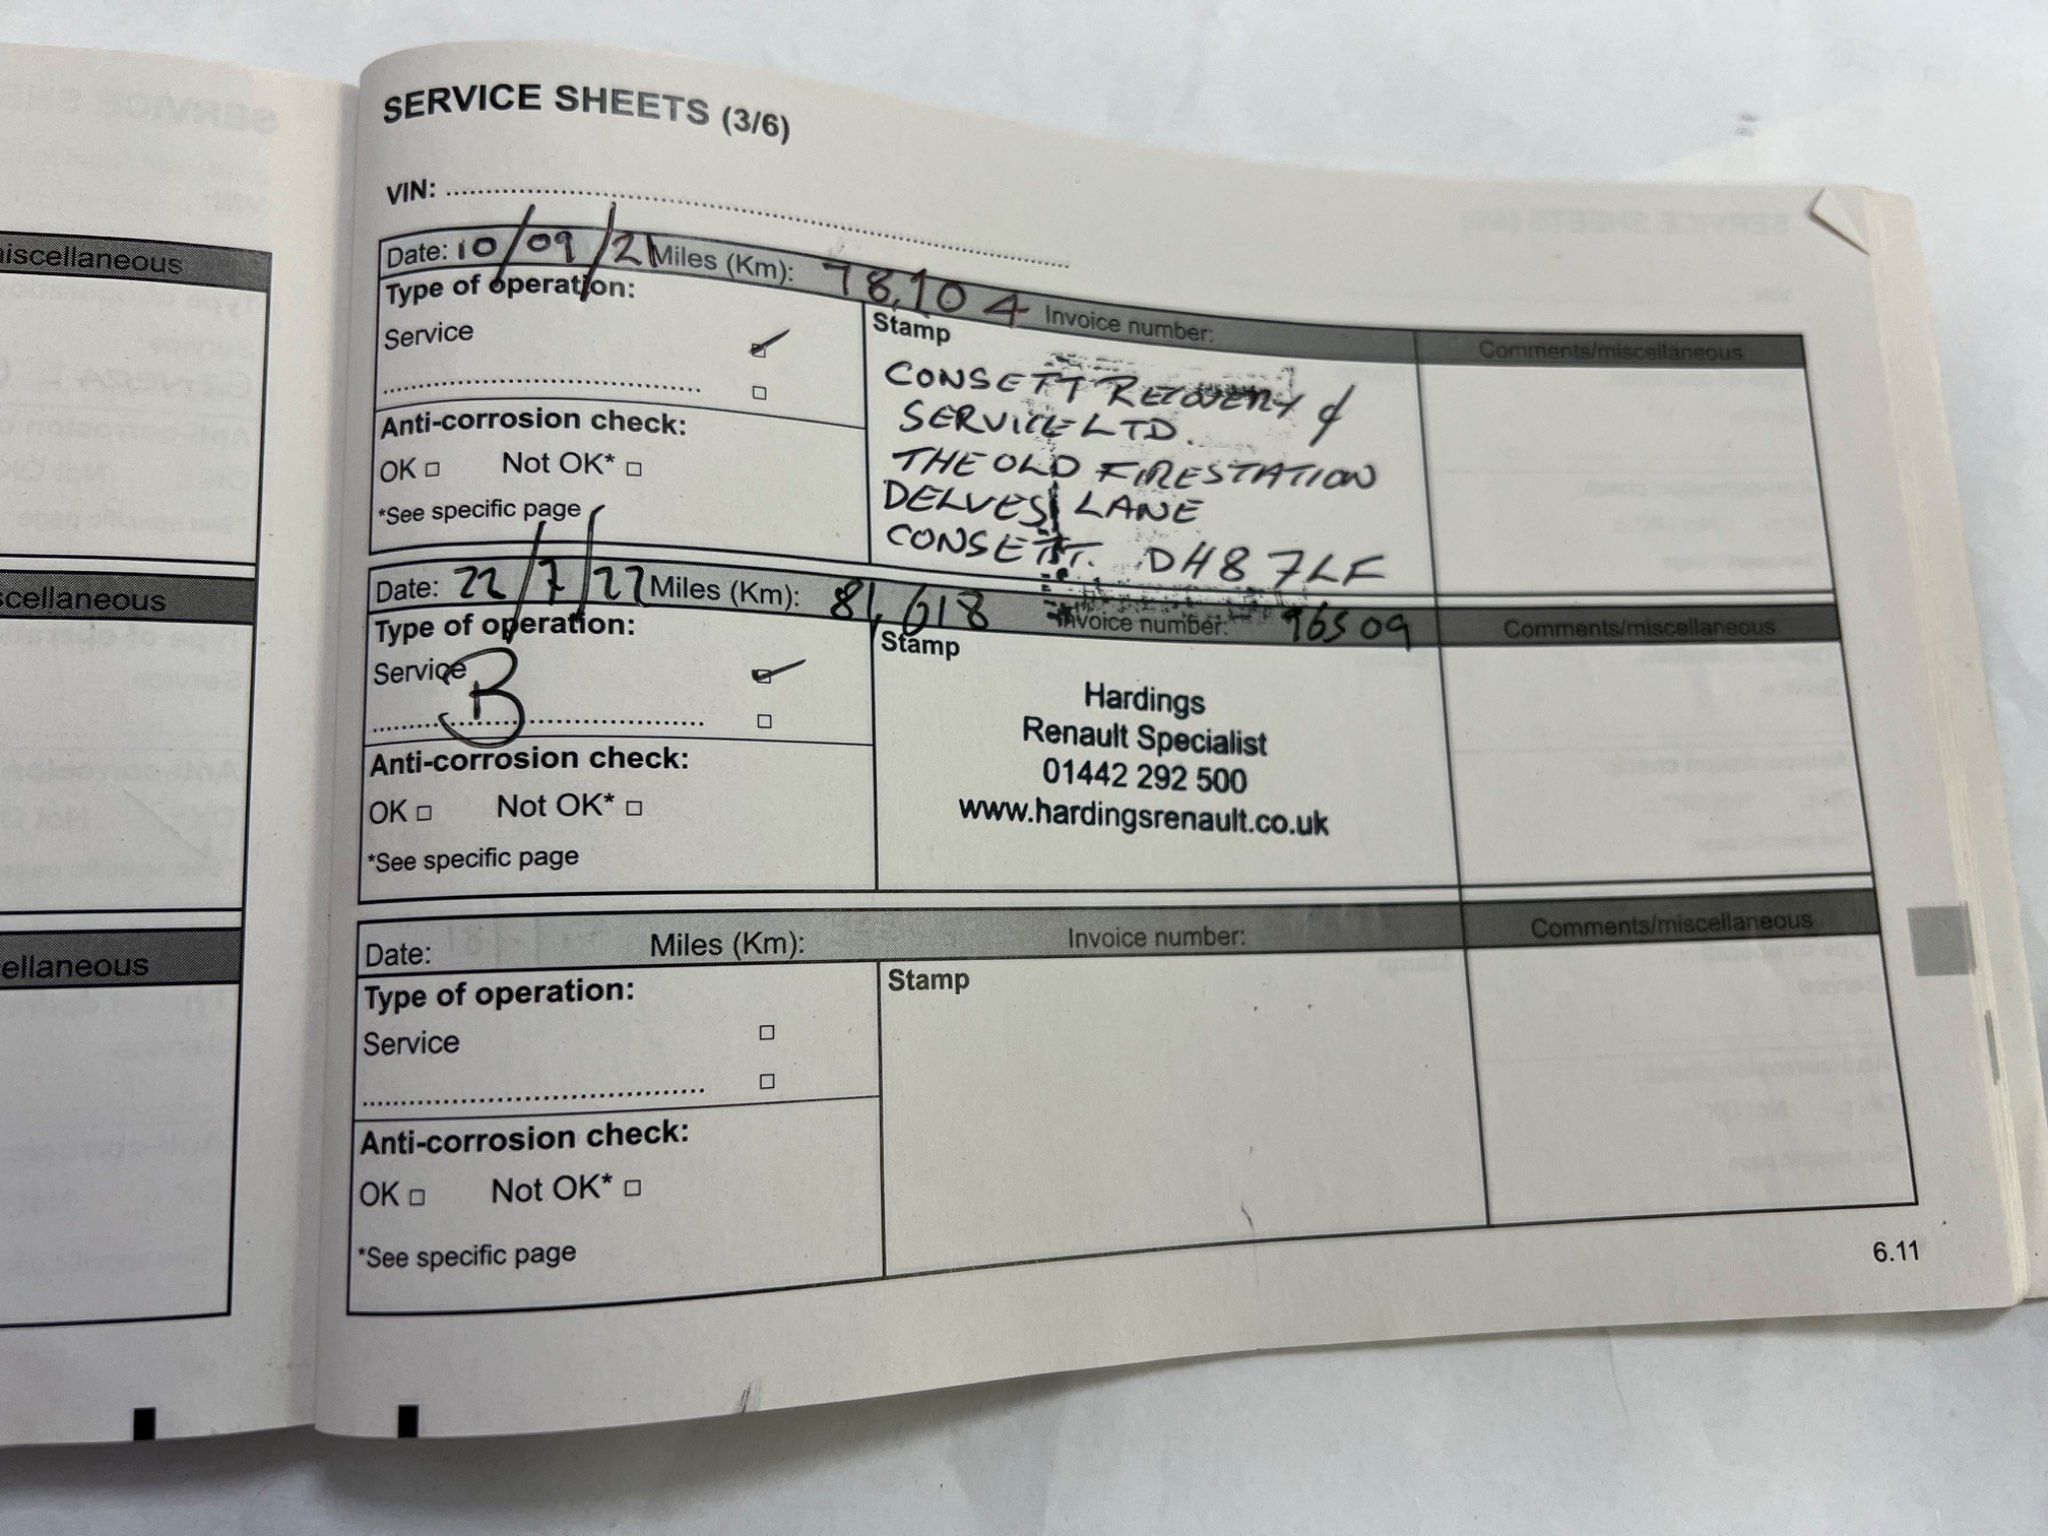 SERVICE SHEETS (3/6)
VIN:
Date: 10/09/21 Miles (Km): 78,104 Invoice number: Comments/miscellaneous
Type of operation:
Service
Stamp
CONSETT RECOVERY &
SERVICE LTD.
THE OLD FIRESTATION
DELVES LANE
CONSETT. DH8 7LF
Anti-corrosion check:
OK Not OK*
*See specific page
Date: 22/7/22 Miles (Km): 81,618 Invoice number: 96509 Comments/miscellaneous
Type of operation:
Service
B
Stamp
Hardings
Renault Specialist
01442 292 500
www.hardingsrenault.co.uk
Anti-corrosion check:
OK Not OK*
*See specific page
Date: Miles (Km): Invoice number: Comments/miscellaneous
Type of operation:
Service
Stamp
Anti-corrosion check:
OK Not OK*
*See specific page
6.11